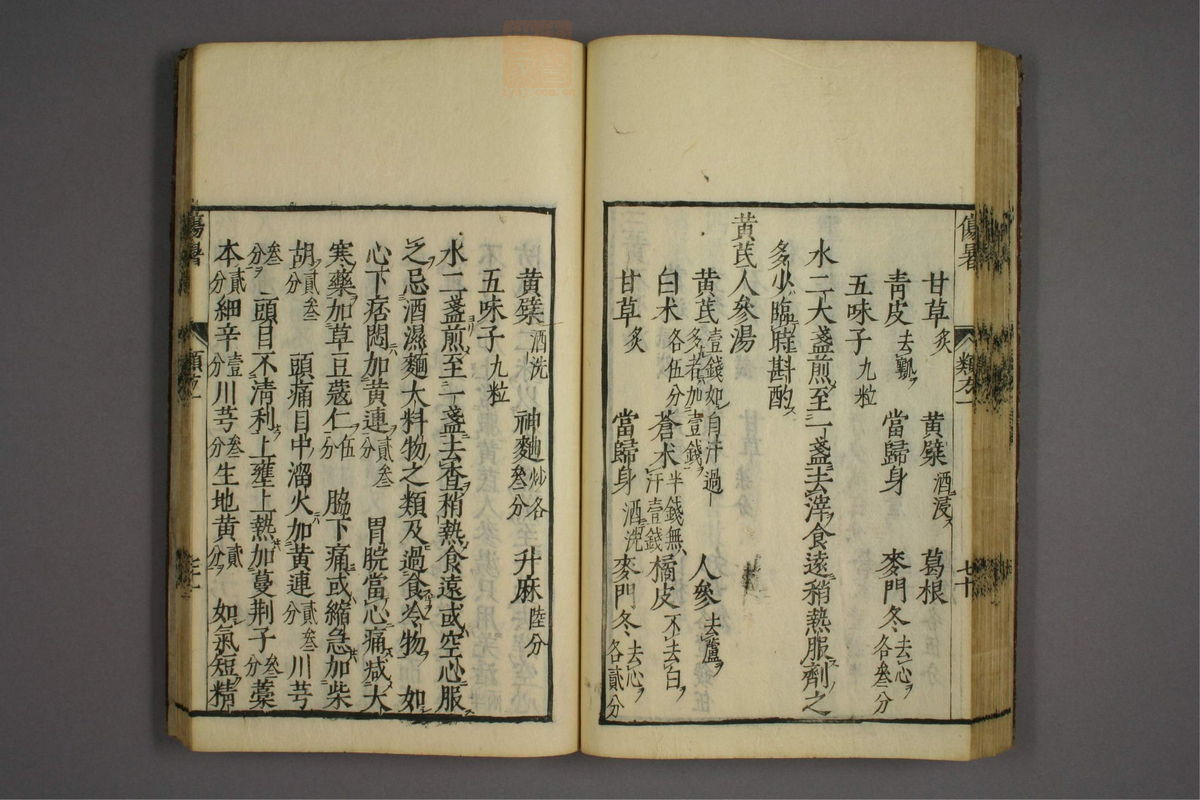 傷暑
類方一
七十
甘草炙 黄檗酒浸 葛根
青皮去瓤 當歸身 麥門冬去心各叄分
五味子九粒
水二大盞煎至一盞去滓食遠稍熱服劑之
多少臨時斟酌
黄芪人參湯
黄芪壹錢如自汗過多者加壹錢 人參去蘆
白术各伍分 蒼术半錢無汗壹錢 橘皮不去白
甘草炙 當歸身酒洗 麥門冬去心各貳分
黄檗酒洗 神麯炒各叄分 升麻陸分
五味子九粒
水二盞煎至一盞去査稍熱食遠或空心服
之忌酒濕麵大料物之類及過食冷物 如
心下痞悶加黄連貳叄分 胃脘當心痛減大
寒藥加草豆蔻仁伍分 脇下痛或縮急加柴
胡貳叄分 頭痛目中溜火加黄連貳叄分川芎
叄分 頭目不清利上壅上熱加蔓荊子叄分藁
本貳分細辛壹分川芎叄分生地黄貳分 如氣短精
傷暑
類方一
七十一